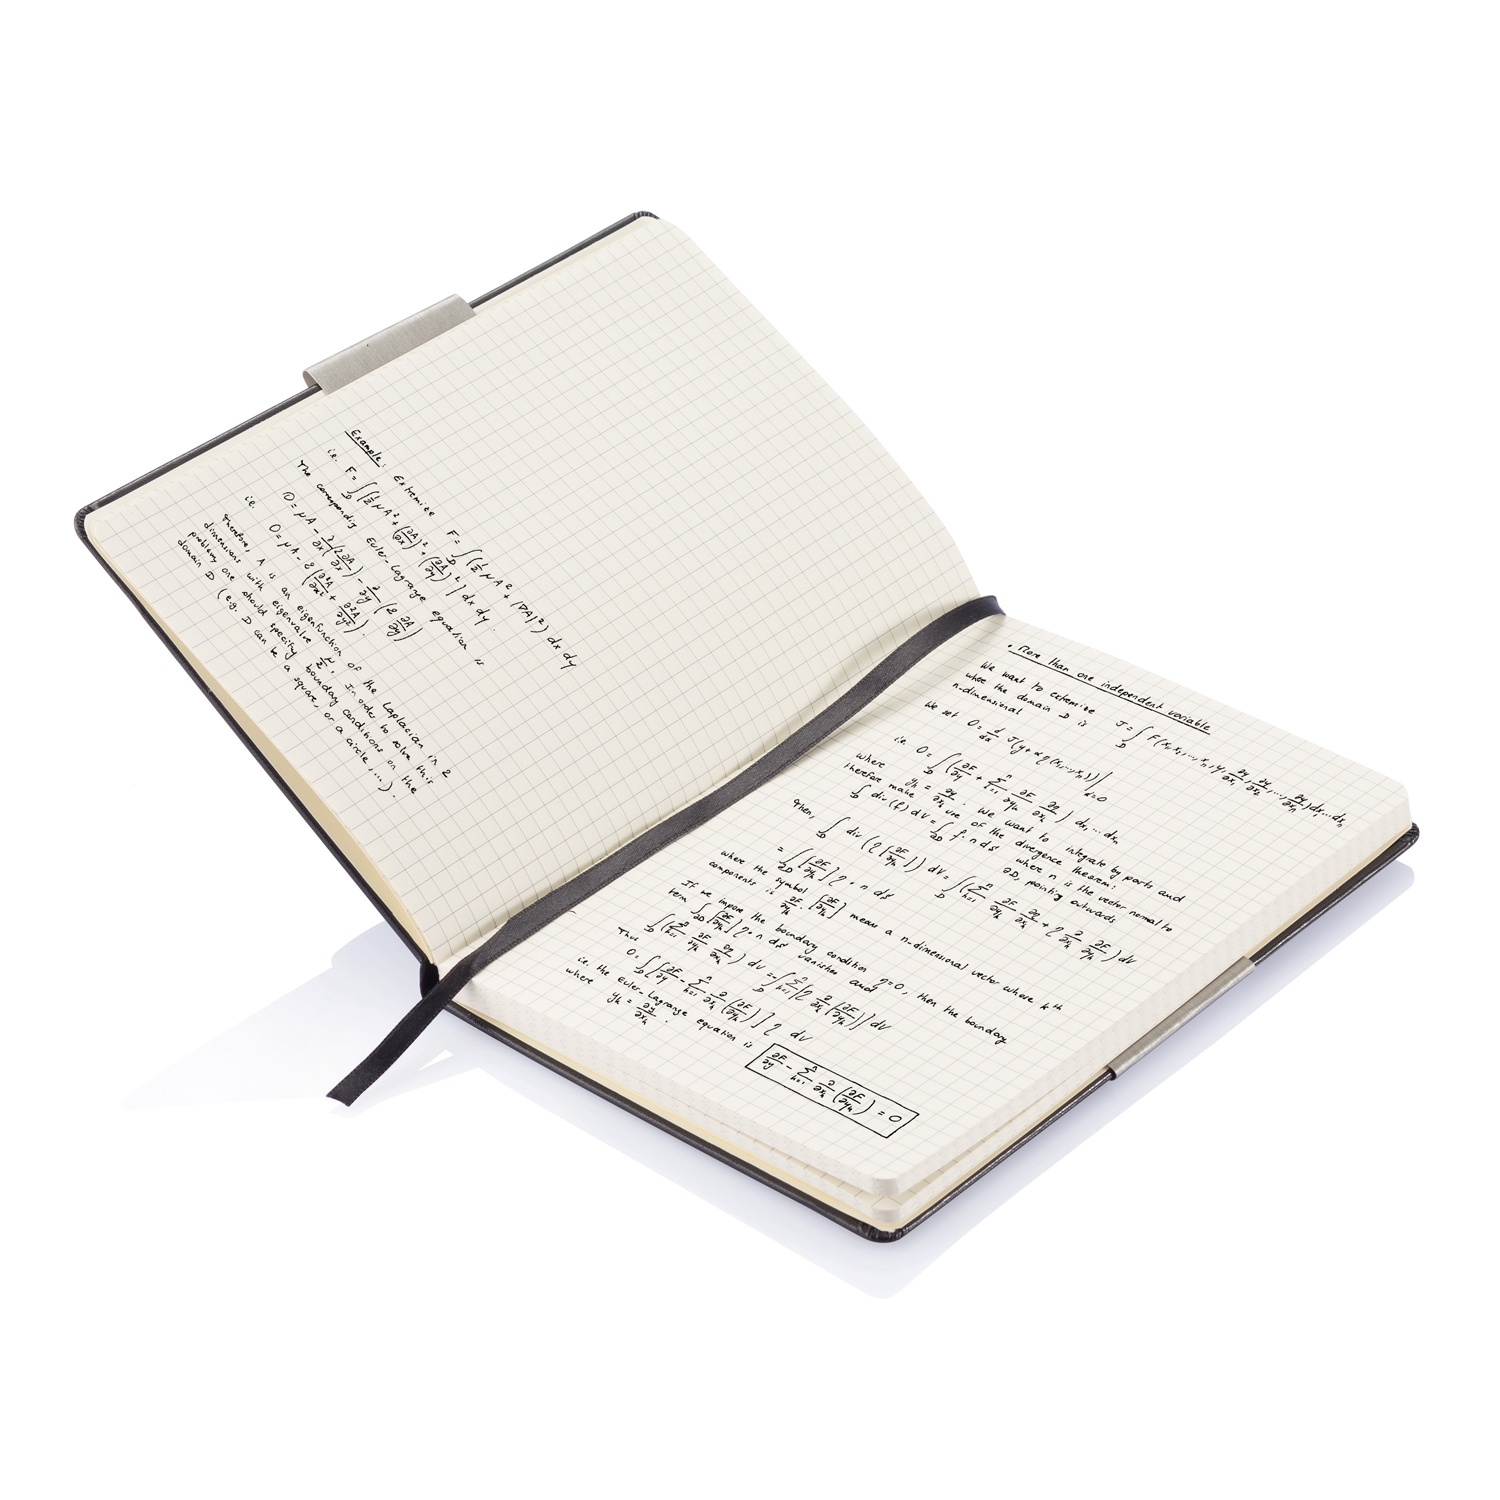 Example: Extremize F = ∫_D (½ μA² + |∇A|²) dx dy
i.e. F = ∫_D [½ μA² + (∂A/∂x)² + (∂A/∂y)²] dx dy.
The corresponding Euler-Lagrange equation is
0 = μA - ∂/∂x (2 ∂A/∂x) - ∂/∂y (2 ∂A/∂y)
i.e. 0 = μA - 2 (∂²A/∂x² + ∂²A/∂y²).
Therefore, A is an eigenfunction of the Laplacian in 2
dimensions with eigenvalue μ/2. In order to solve this
problem one should specify boundary conditions on the
domain D (e.g. D can be a square, or a circle, ...).
• More than one independent variable
We want to extremize J = ∫_D F(x₁, x₂, ..., xₙ, y, ∂y/∂x₁, ∂y/∂x₂, ..., ∂y/∂xₙ) dx₁...dxₙ
where the domain D is
n-dimensional
We set 0 = d/dα J(y + α η(x₁,...,xₙ))|α=0
i.e. 0 = ∫_D (∂F/∂y η + Σₖ₌₁ⁿ ∂F/∂yₖ ∂η/∂xₖ) dx₁...dxₙ
where yₖ = ∂y/∂xₖ. We want to integrate by parts and
therefore make use of the divergence theorem:
∫_D div(f) dV = ∫_∂D f·n dS where n is the vector normal to
∂D, pointing outwards
Then, ∫_D div(η [∂F/∂yₖ]) dV = ∫_D (Σₖ₌₁ⁿ ∂F/∂yₖ ∂η/∂xₖ + η ∂/∂xₖ ∂F/∂yₖ) dV
= ∫_∂D [∂F/∂yₖ] η·n dS
where the symbol [∂F/∂yₖ] means a n-dimensional vector where kth
components is ∂F/∂yₖ.
If we impose the boundary condition η=0, then the boundary
term ∫_∂D [∂F/∂yₖ] η·n dS vanishes and
∫_D (Σₖ₌₁ⁿ ∂F/∂yₖ ∂η/∂xₖ) dV = -∫_D Σₖ₌₁ⁿ [η ∂/∂xₖ (∂F/∂yₖ)] dV
Thus 0 = ∫_D [∂F/∂y - Σₖ₌₁ⁿ ∂/∂xₖ (∂F/∂yₖ)] η dV
i.e. the Euler-Lagrange equation is ∂F/∂y - Σₖ₌₁ⁿ ∂/∂xₖ (∂F/∂yₖ) = 0
where yₖ = ∂y/∂xₖ.